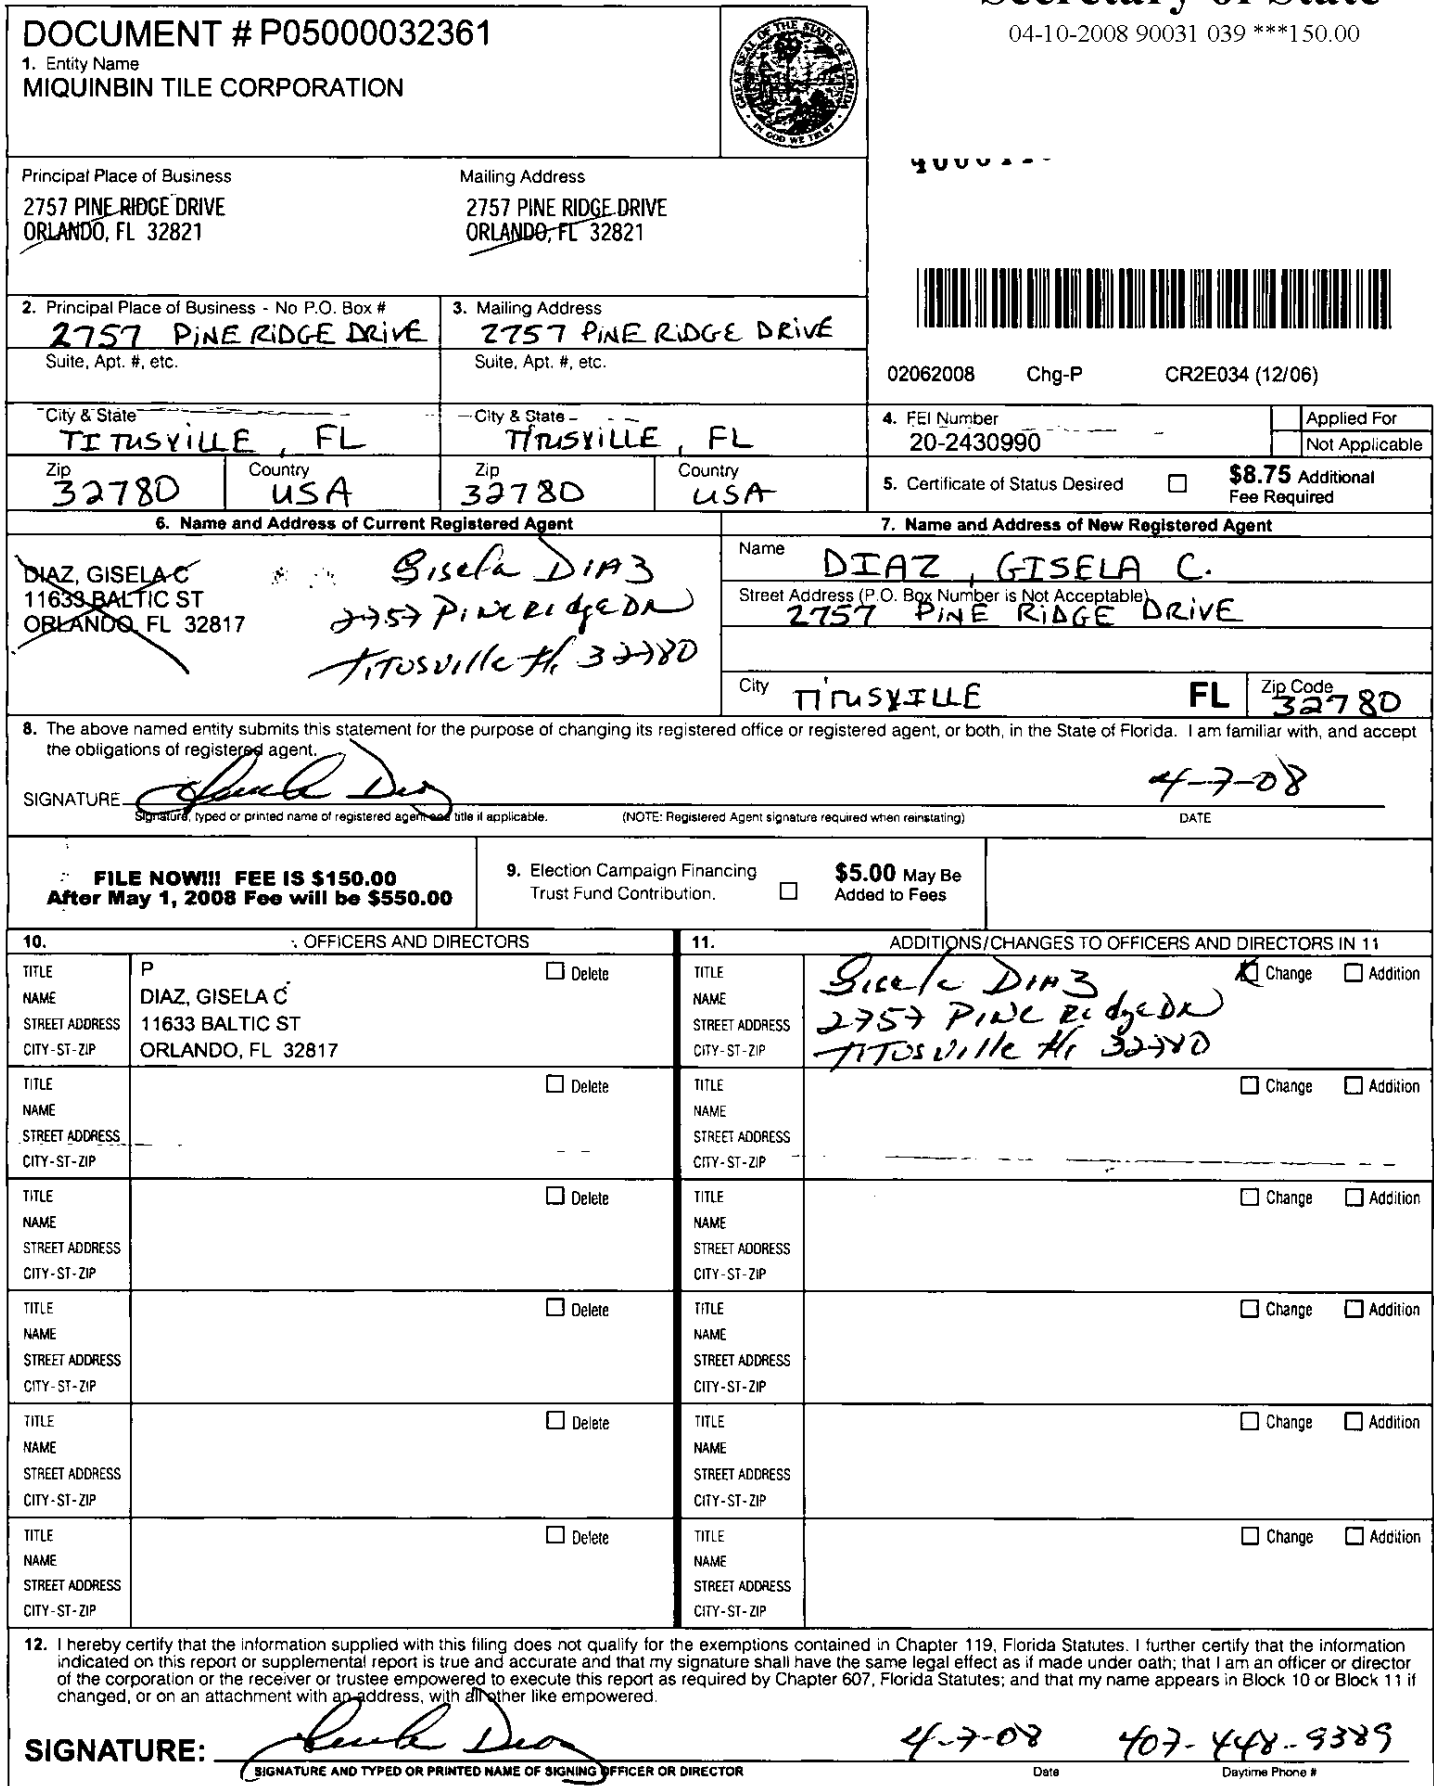 Secretary of State
04-10-2008 90031 039 ***150.00
DOCUMENT # P05000032361
1. Entity Name
MIQUINBIN TILE CORPORATION
GREAT SEAL OF THE STATE OF FLORIDA
IN GOD WE TRUST
Principal Place of Business
2757 PINE RIDGE DRIVE
ORLANDO, FL 32821
Mailing Address
2757 PINE RIDGE DRIVE
ORLANDO, FL 32821
2. Principal Place of Business - No P.O. Box #
2757 PINE RIDGE DRIVE
3. Mailing Address
2757 PINE RIDGE DRIVE
Suite, Apt. #, etc.
Suite, Apt. #, etc.
02062008 Chg-P CR2E034 (12/06)
City & State
TITUSVILLE, FL
City & State
TITUSVILLE, FL
4. FEI Number
20-2430990
Applied For
Not Applicable
Zip
32780
Country
USA
Zip
32780
Country
USA
5. Certificate of Status Desired
$8.75 Additional
Fee Required
6. Name and Address of Current Registered Agent
DIAZ, GISELA C
11633 BALTIC ST
ORLANDO, FL 32817
Gisela DIAZ
2757 PINE RidgE DR
TITUSVille Fl. 32780
7. Name and Address of New Registered Agent
Name
DIAZ, GISELA C.
Street Address (P.O. Box Number is Not Acceptable)
2757 PINE RIDGE DRIVE
City TITUSVILLE FL Zip Code 32780
8. The above named entity submits this statement for the purpose of changing its registered office or registered agent, or both, in the State of Florida. I am familiar with, and accept
the obligations of registered agent.
SIGNATURE
4-7-08
Signature, typed or printed name of registered agent and title if applicable. (NOTE: Registered Agent signature required when reinstating) DATE
FILE NOW!!! FEE IS $150.00
After May 1, 2008 Fee will be $550.00
9. Election Campaign Financing
Trust Fund Contribution.
$5.00 May Be
Added to Fees
10. OFFICERS AND DIRECTORS
TITLE P Delete
NAME DIAZ, GISELA C
STREET ADDRESS 11633 BALTIC ST
CITY-ST-ZIP ORLANDO, FL 32817
TITLE Delete
NAME
STREET ADDRESS
CITY-ST-ZIP
TITLE Delete
NAME
STREET ADDRESS
CITY-ST-ZIP
TITLE Delete
NAME
STREET ADDRESS
CITY-ST-ZIP
TITLE Delete
NAME
STREET ADDRESS
CITY-ST-ZIP
TITLE Delete
NAME
STREET ADDRESS
CITY-ST-ZIP
11. ADDITIONS/CHANGES TO OFFICERS AND DIRECTORS IN 11
TITLE Gisela DIAZ Change Addition
NAME
STREET ADDRESS 2757 PINE RidgE DR
CITY-ST-ZIP TITUSVille Fl 32780
TITLE Change Addition
NAME
STREET ADDRESS
CITY-ST-ZIP
TITLE Change Addition
NAME
STREET ADDRESS
CITY-ST-ZIP
TITLE Change Addition
NAME
STREET ADDRESS
CITY-ST-ZIP
TITLE Change Addition
NAME
STREET ADDRESS
CITY-ST-ZIP
TITLE Change Addition
NAME
STREET ADDRESS
CITY-ST-ZIP
12. I hereby certify that the information supplied with this filing does not qualify for the exemptions contained in Chapter 119, Florida Statutes. I further certify that the information
indicated on this report or supplemental report is true and accurate and that my signature shall have the same legal effect as if made under oath; that I am an officer or director
of the corporation or the receiver or trustee empowered to execute this report as required by Chapter 607, Florida Statutes; and that my name appears in Block 10 or Block 11 if
changed, or on an attachment with an address, with all other like empowered.
SIGNATURE: 4-7-08 407-448-9389
SIGNATURE AND TYPED OR PRINTED NAME OF SIGNING OFFICER OR DIRECTOR Date Daytime Phone #